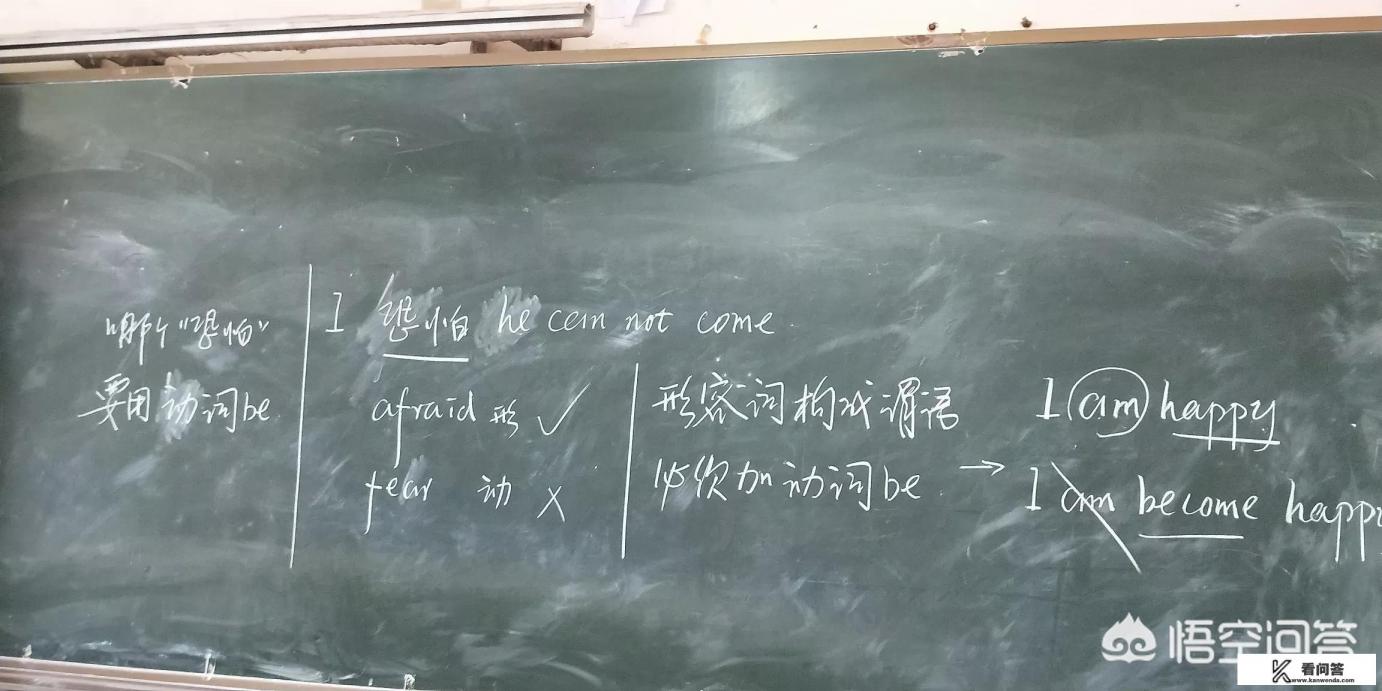 哪个"恐怕"
要用动词be
I 恐怕 he can not come.
afraid 形 ✓
fear 动 ×
形容词构成谓语
必须加动词be. →
I am happy
I am become happy
悟空问答
看问答
www.kanwenda.com